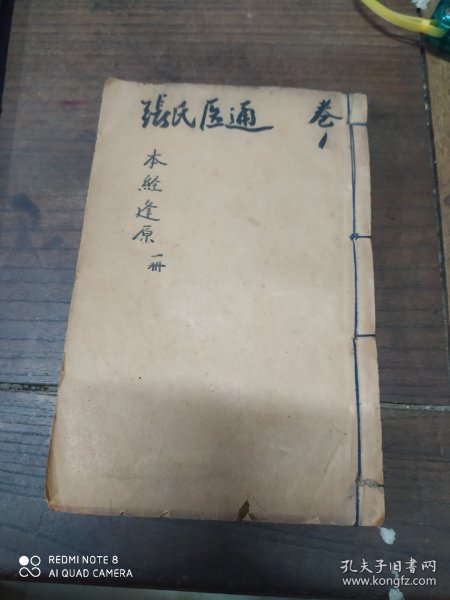 張氏医通 卷1
本經逢原一册
REDMI NOTE 8
AI QUAD CAMERA
孔夫子旧书网
www.kongfz.com